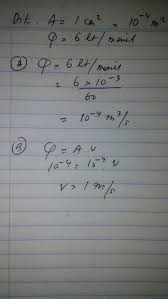 Dik. A = 1 cm² = 10⁻⁴ m²
φ = 6 lt/menit
(A) φ = 6 lt/menit
= 6 × 10⁻³ / 60
= 10⁻⁴ m³/s
(B) φ = A v
10⁻⁴ = 10⁻⁴ . v
v = 1 m/s